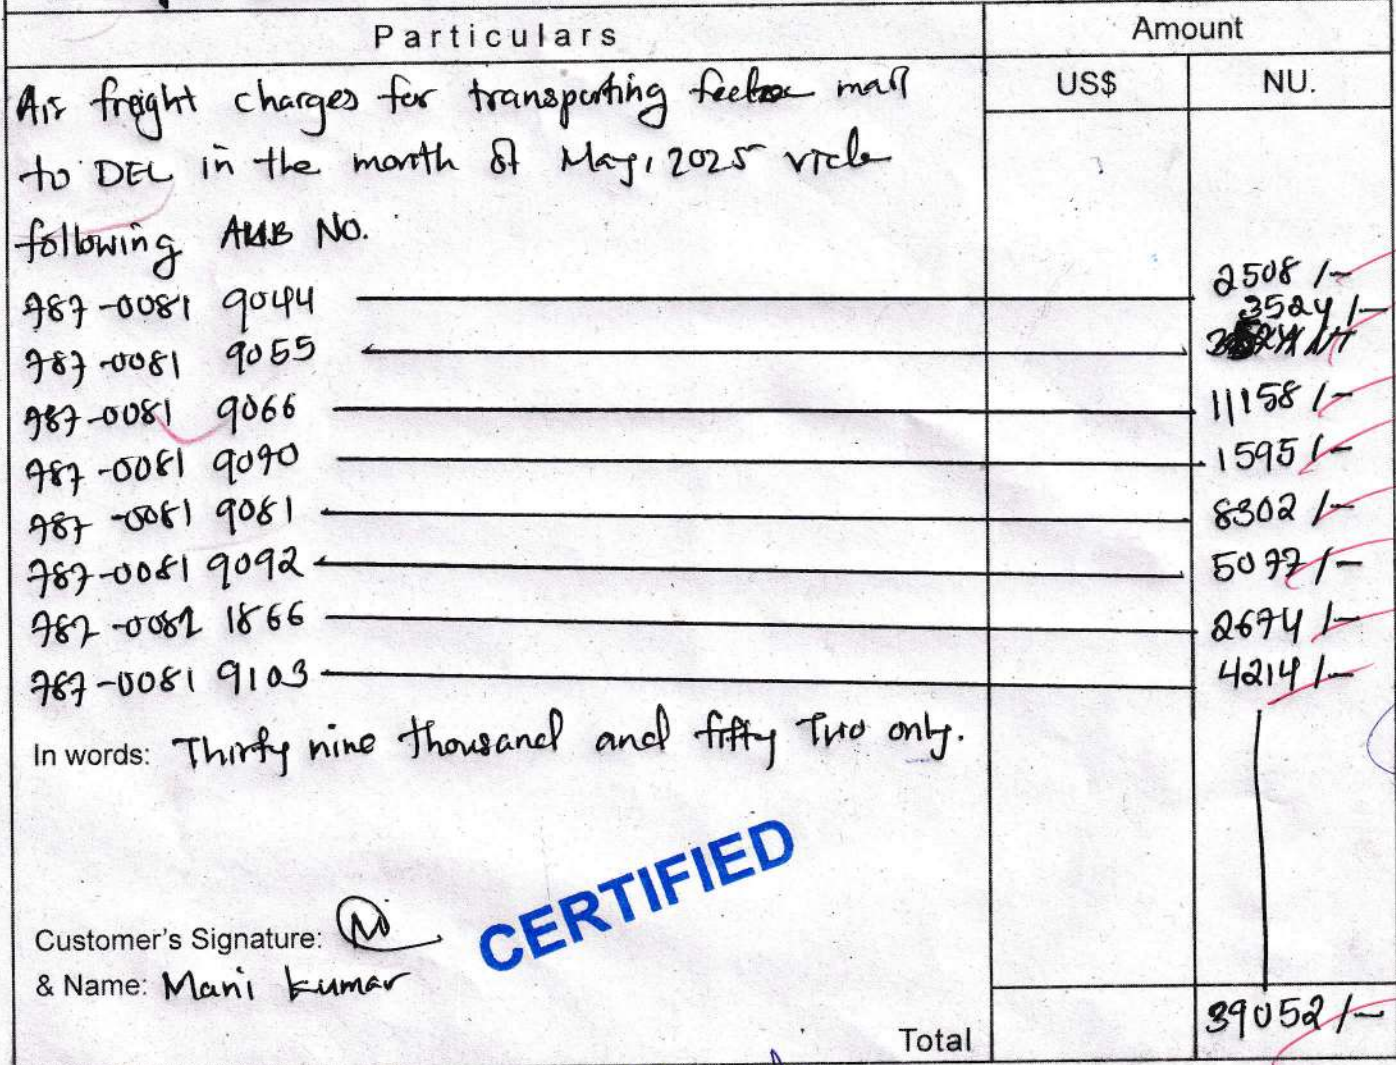 Particulars Amount
US$ NU.
Air freight charges for transporting mail
to DEL in the month of May, 2025 vide
following AWB No.
787-0081 9044 2508/-
787-0081 9055 3524/-
787-0081 9066 11158/-
787-0081 9070 1595/-
787-0081 9081 8302/-
787-0081 9092 5077/-
787-0082 1866 2674/-
787-0081 9103 4214/-
In words: Thirty nine thousand and fifty Two only.
CERTIFIED
Customer's Signature:
& Name: Mani kumar
Total 39052/-